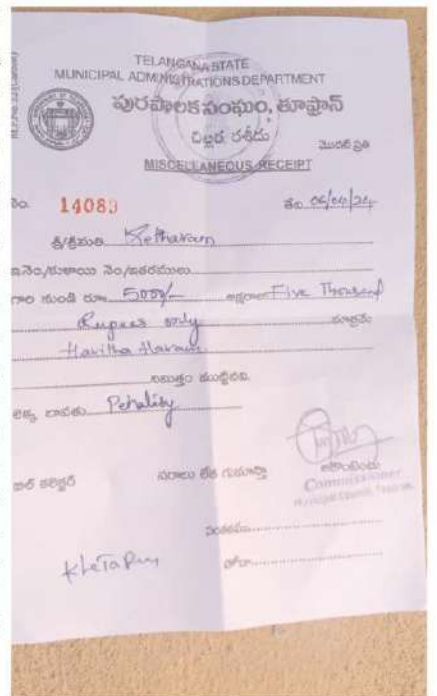 TELANGANA STATE
MUNICIPAL ADMINISTRATIONS DEPARTMENT
పురపాలక సంఘం, తూప్రాన్
చిల్లర రశీదు
మొదటి ప్రతి
MISCELLANEOUS RECEIPT
నెం. 14083 తేది. 06/04/24
శ్రీ/శ్రీమతి Ketharam
ఇ.నెం/కుళాయి నెం/ఇతరములు
గారి నుండి రూ. 5000/- అక్షరాల Five Thousand
Rupees only మాత్రమే
Haritha Haram
నిమిత్తం ముట్టినవి.
లెక్క బాపతు Penality
బిల్ కలెక్టర్ సరాలు లేక గుమాస్తా అకౌంటెంటు
Commissioner
Municipal Council, Toopran
సంతకము
హోదా